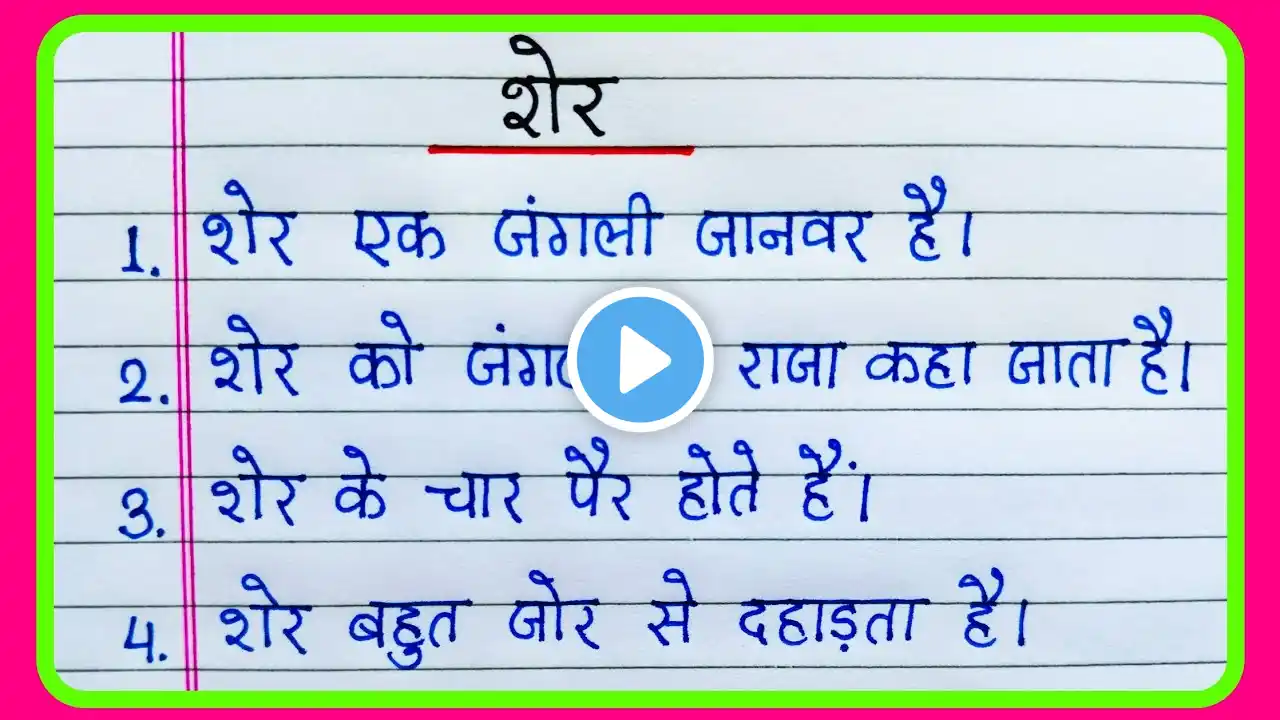 शेर
1. शेर एक जंगली जानवर है।
2. शेर को राजा कहा जाता है।
3. शेर के चार पैर होते हैं।
4. शेर बहुत जोर से दहाड़ता है।